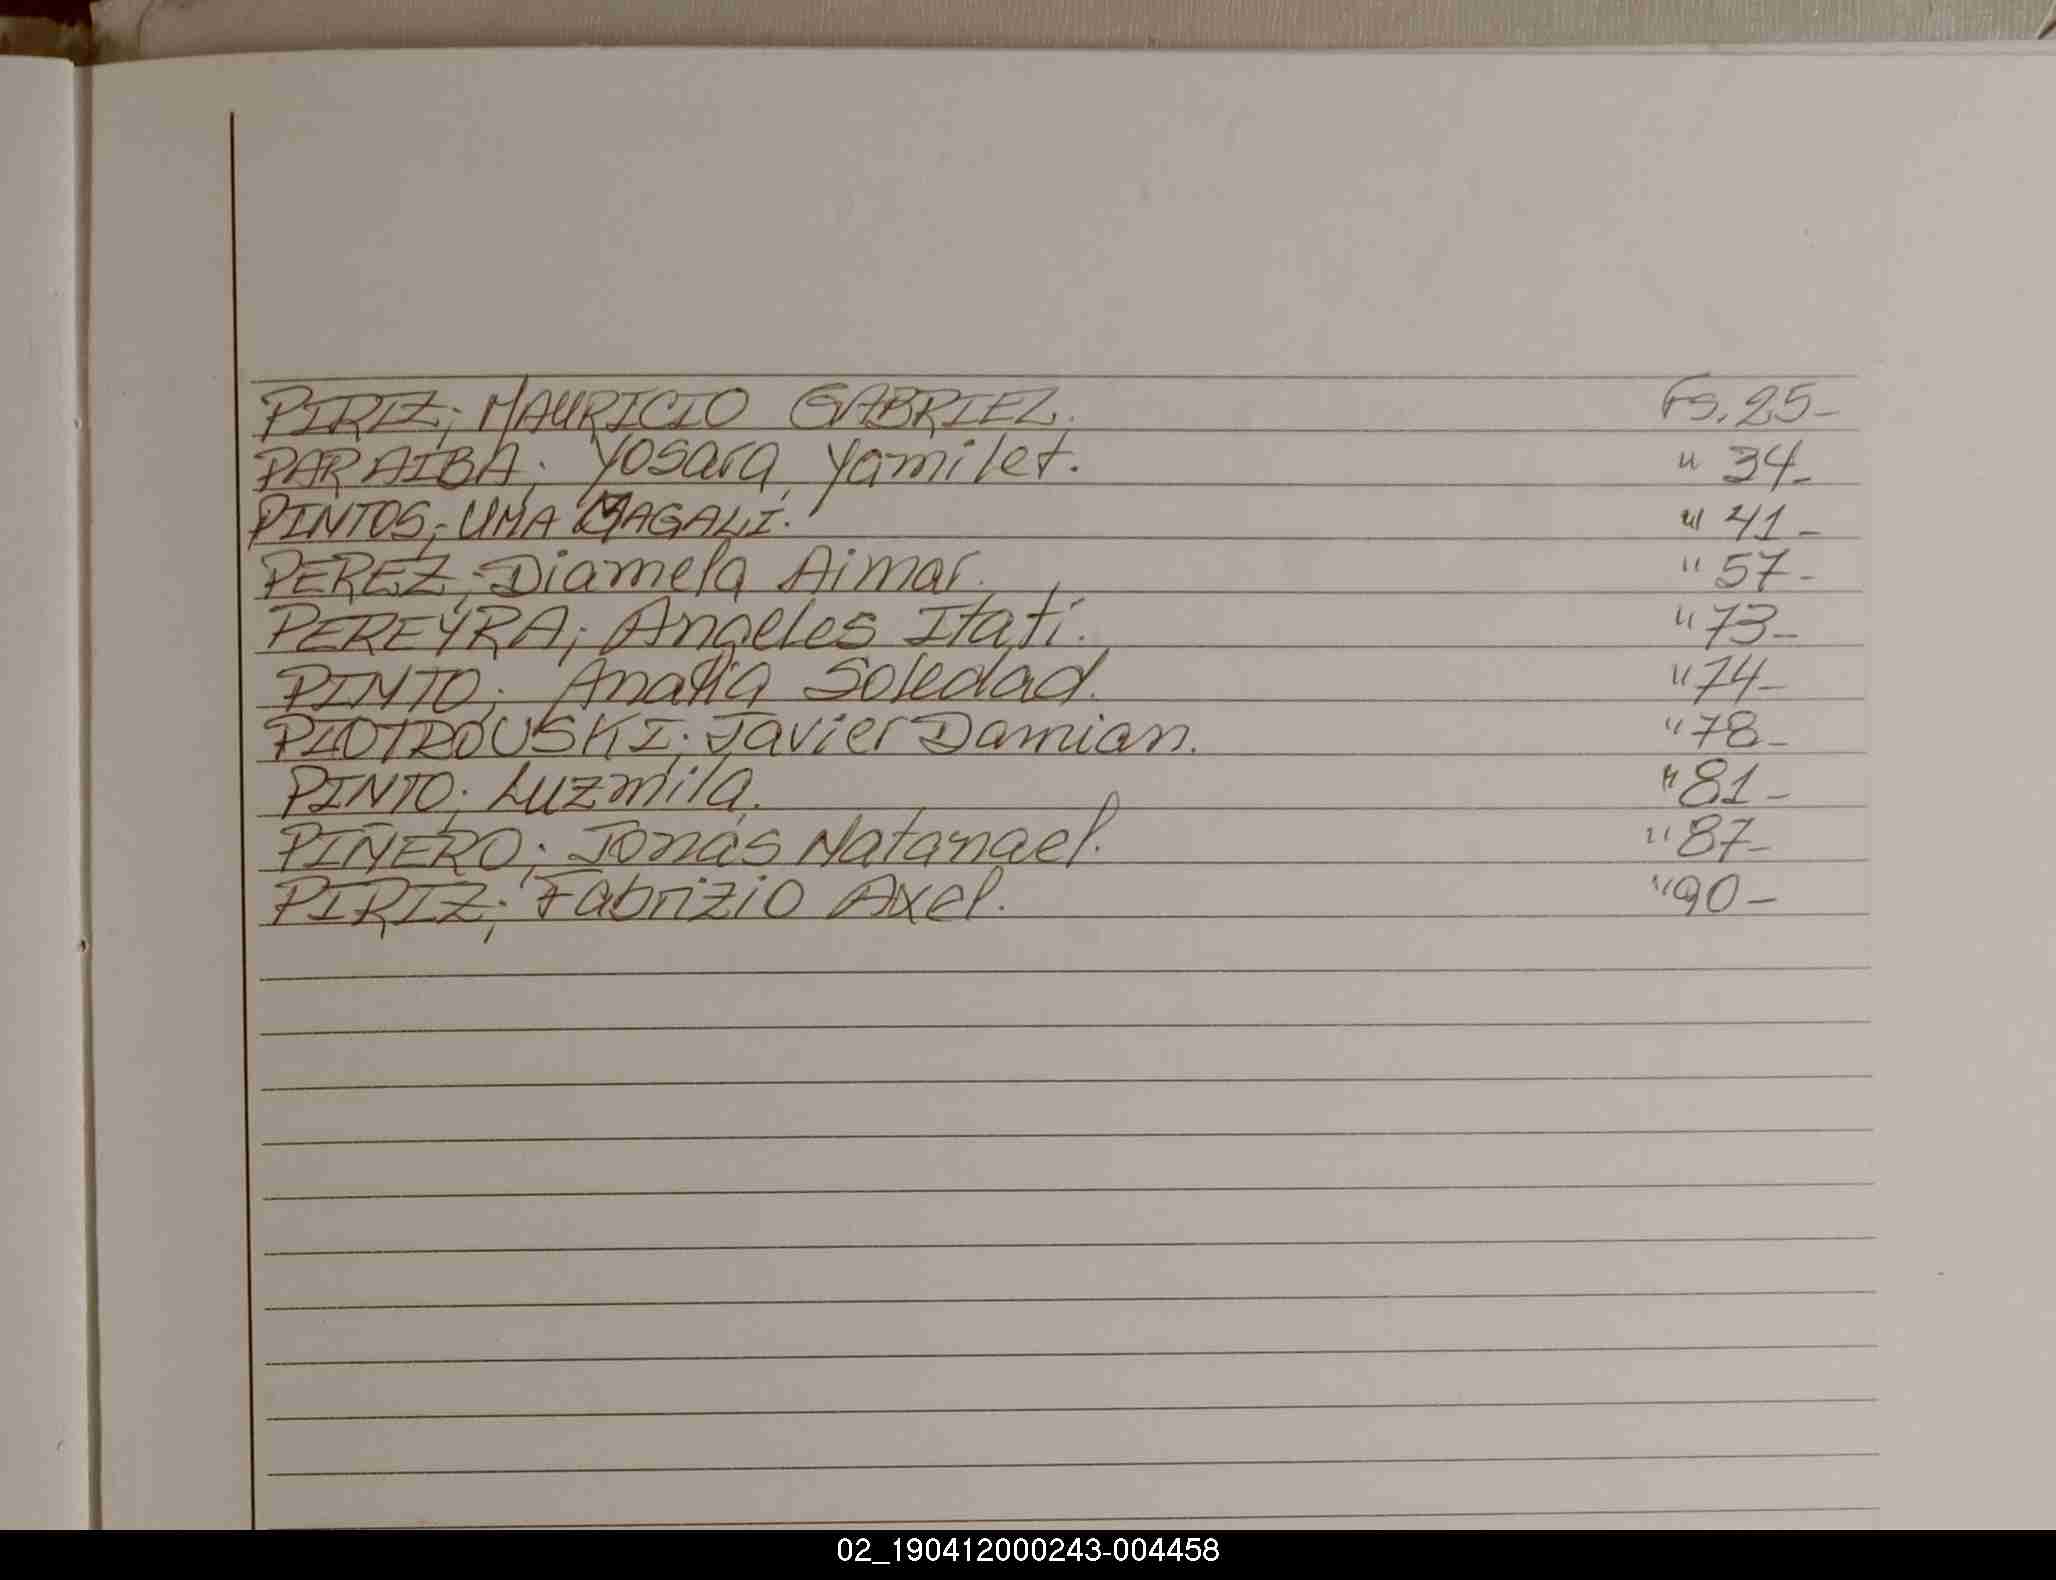 PIRIZ; MAURICIO GABRIEL. Fs. 25-
PARAIBA; Yosara, Yamilet. " 34-
PINTOS; UMA MAGALI. " 41-
PEREZ; Diamela Aimar. " 57-
PEREYRA; Angeles Itatí. " 73-
PINTO; Analia Soledad. " 74-
PIOTROUSKI; Javier Damian. " 78-
PINTO; Luzmila. " 81-
PIÑERO; Jonás Natanael. " 87-
PIRIZ; Fabrizio Axel. " 90-
02_190412000243-004458